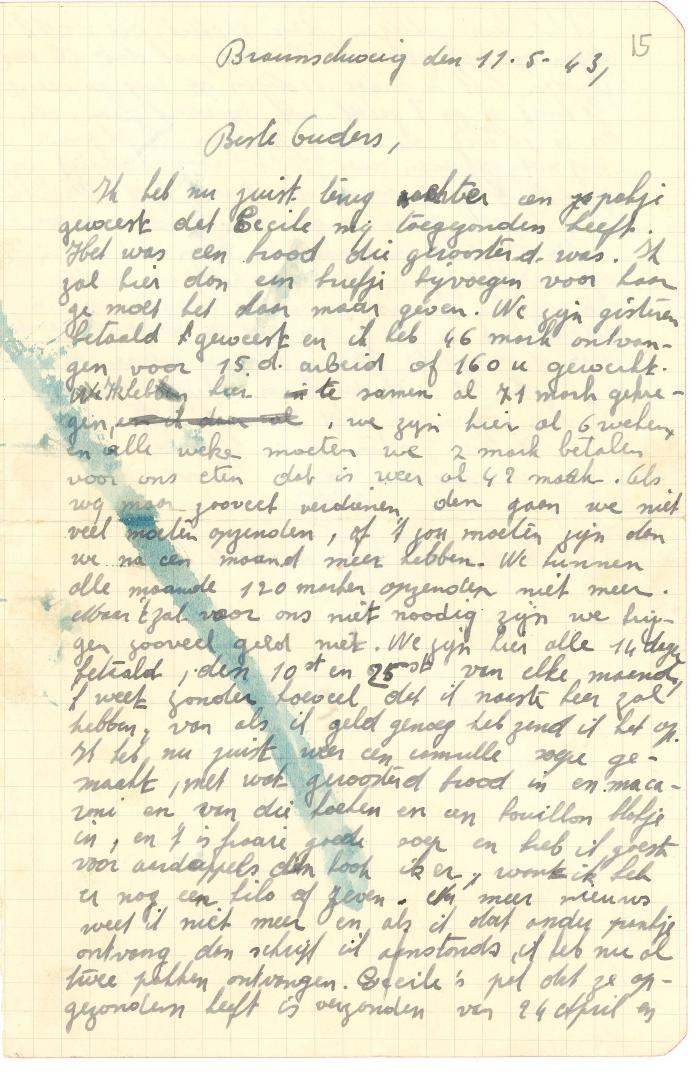 15
Braunschweig den 11-5-43,
Beste Ouders,
Ik heb nu juist terug achter een pakje
geweest dat Cecile mij toegezonden heeft.
Het was een brood die geroosterd was. Ik
zal hier dan een briefje bijvoegen voor haar
ge moet het daar maar geven. We zijn gisteren
betaald geweest en ik heb 46 mark ontvan-
gen voor 15 d. arbeid of 160 u gewerkt.
Ik heb hier te samen al 71 mark gekre-
gen, en ik daar al, we zijn hier al 6 weken
en alle weke moeten we 7 mark betalen
voor ons eten dat is weer al 42 mark. Als
wij maar zooveel verdienen den gaan we niet
veel moeten opzenden, of 't zou moeten zijn den
we na een maand meer hebben. We kunnen
alle maande 120 marken opzenden niet meer.
Maar 't zal voor ons niet noodig zijn we krij-
gen zooveel geld niet. We zijn hier alle 14 dagen
betaald, den 10st en 25st van elke maand,
'k weet zonder hoeveel dat ik naaste keer zal
hebben, van als ik geld genoeg heb zend ik het op.
Ik heb nu juist weer een soepe ge-
maakt, met wat geroosterd brood in en maca-
roni en van die koeken en een bouillon blokje
in, en 't is fraaie goede soep en heb ik goest
voor aardappels den kook ik er, want ik heb
er nog een kilo of zeven. meer nieuws
weet ik niet meer en als ik dat ander pakje
ontvang den schrijf ik aenstonds, ik heb nu al
twee pakken ontvangen. Cecile's pak dat ze op-
gezonden heeft is verzonden van 24 April en